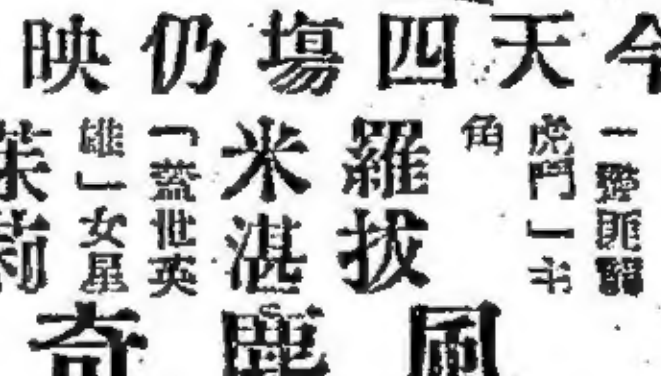 今天四塲仍映
虎鬥」主
角
羅拔
米湛
「蓋世英
雄」女星
茉莉
風塵奇